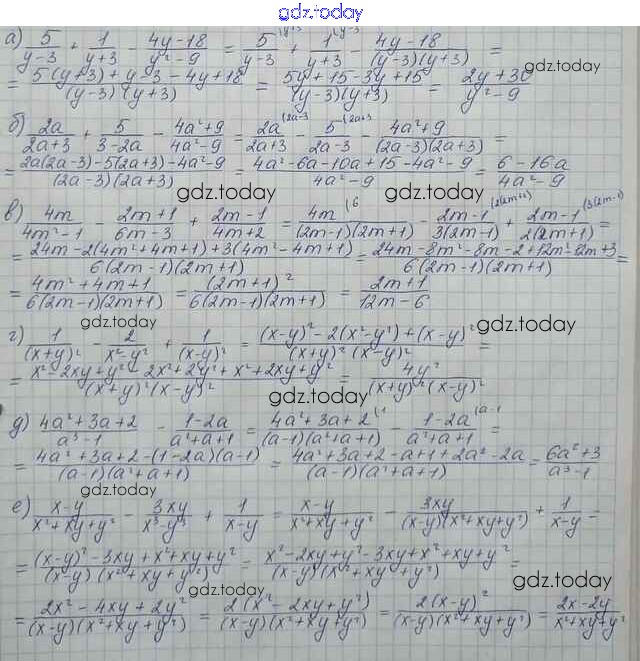 gdz.today
а) 5/(y-3) + 1/(y+3) - (4y-18)/(y²-9) = 5/(y-3) (y+3 + 1/(y+3) (y-3 - (4y-18)/((y-3)(y+3)) =
= (5(y+3)+y-3-4y+18)/((y-3)(y+3)) = (5y+15-3y+15)/((y-3)(y+3)) = (2y+30)/(y²-9)
gdz.today
б) 2a/(2a+3) + 5/(3-2a) - (4a²+9)/(4a²-9) = 2a/(2a+3) (2a-3 - 5/(2a-3) (2a+3 - (4a²+9)/((2a-3)(2a+3)) =
= (2a(2a-3)-5(2a+3)-4a²-9)/((2a-3)(2a+3)) = (4a²-6a-10a+15-4a²-9)/(4a²-9) = (6-16a)/(4a²-9)
gdz.today gdz.today
в) 4m/(4m²-1) - (2m+1)/(6m-3) + (2m-1)/(4m+2) = 4m/((2m-1)(2m+1)) (6 - (2m-1)/(3(2m-1)) (2(2m+1) + (2m-1)/(2(2m+1)) (3(2m-1) =
= (24m-2(4m²+4m+1)+3(4m²-4m+1))/(6(2m-1)(2m+1)) = (24m-8m²-8m-2+12m²-12m+3)/(6(2m-1)(2m+1)) =
= (4m²+4m+1)/(6(2m-1)(2m+1)) = (2m+1)²/(6(2m-1)(2m+1)) = (2m+1)/(12m-6)
gdz.today gdz.today
г) 1/(x+y)² - 2/(x²-y²) + 1/(x-y)² = ((x-y)²-2(x²-y²)+(x-y)²)/((x+y)²(x-y)²) =
= (x²-2xy+y²-2x²+2y²+x²+2xy+y²)/((x+y)²(x-y)²) = 4y²/((x+y)²(x-y)²)
gdz.today
д) (4a²+3a+2)/(a³-1) - (1-2a)/(a²+a+1) = (4a²+3a+2)/((a-1)(a²+a+1)) (1 - (1-2a)/(a²+a+1) (a-1 =
= (4a²+3a+2-(1-2a)(a-1))/((a-1)(a²+a+1)) = (4a²+3a+2-a+1+2a²-2a)/((a-1)(a²+a+1)) = (6a²+3)/(a³-1)
gdz.today gdz.today
е) (x-y)/(x²+xy+y²) - 3xy/(x³-y³) + 1/(x-y) = (x-y)/(x²+xy+y²) - 3xy/((x-y)(x²+xy+y²)) + 1/(x-y) =
= ((x-y)²-3xy+x²+xy+y²)/((x-y)(x²+xy+y²)) = (x²-2xy+y²-3xy+x²+xy+y²)/((x-y)(x²+xy+y²)) =
gdz.today gdz.today
= (2x²-4xy+2y²)/((x-y)(x²+xy+y²)) = 2(x²-2xy+y²)/((x-y)(x²+xy+y²)) = 2(x-y)²/((x-y)(x²+xy+y²)) = (2x-2y)/(x²+xy+y²)
gdz.today